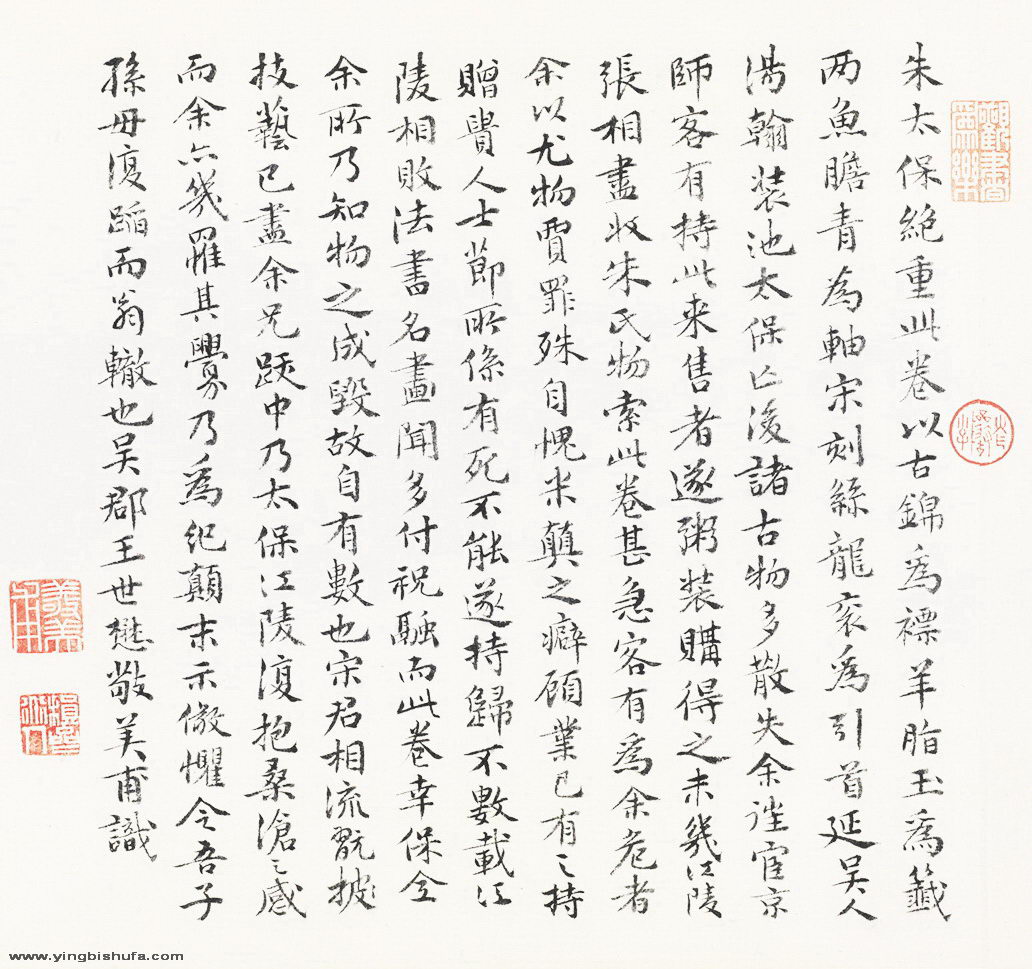 朱太保絕重此卷以古錦為褾羊脂玉為籤
两魚膽青為軸宋刻絲龍衮為引首延吴人
湯翰装池太保亡後諸古物多散失余往宦京
師客有持此来售者遂粥装購得之未幾江陵
張相盡收朱氏物索此卷甚急客有為余危者
余以尤物賈罪殊自愧米顛之癖顧業已有之持
贈貴人士節所係有死不能遂持歸不數載江
陵相敗法書名畫聞多付祝融而此卷幸保全
余所乃知物之成毀故自有數也宋君相流翫披
技藝已盡余兄跋中乃太保江陵復抱桑滄之感
而余亦幾罹其釁乃為紀顛末示儆懼令吾子
孫毋復蹈而翁轍也吴郡王世懋敬美甫識
觀書為樂
www.yingbishufa.com